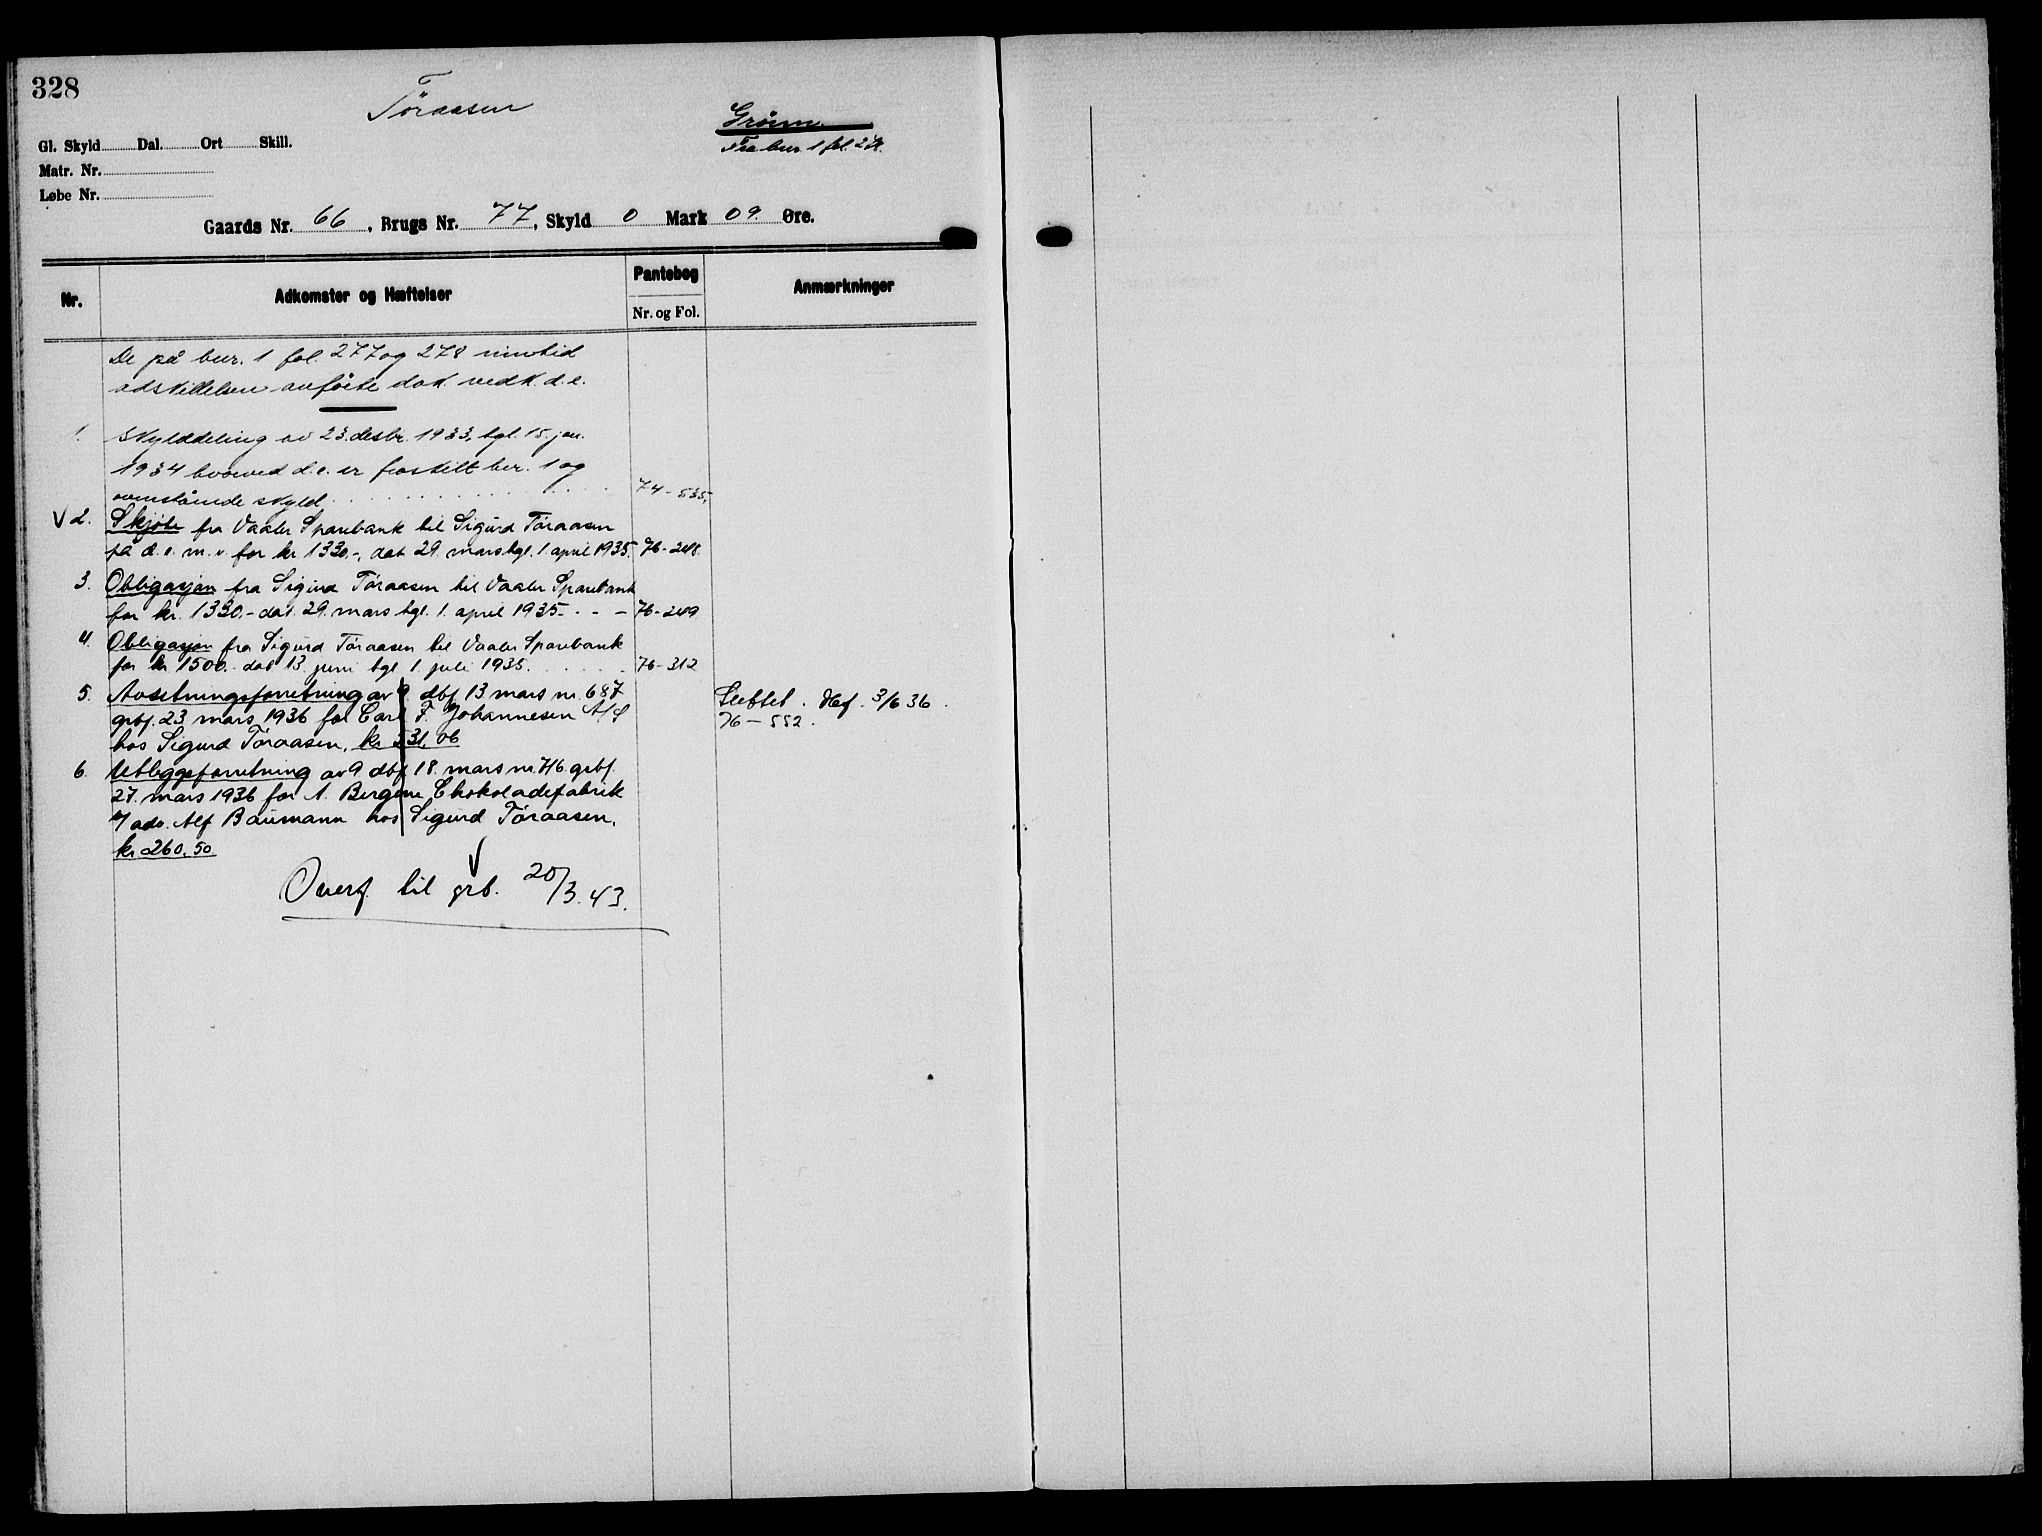 328
Töraasen
Grönn
Fra bnr. 1 fol.
Gl. Skyld Dal. Ort Skill.
Matr. Nr.
Løbe Nr.
Gaards Nr. 66, Brugs Nr. 77, Skyld 0 Mark 09. Øre.
Nr. Adkomster og Hæftelser Pantebog Nr. og Fol. Anmærkninger
De på bnr. 1 fol. 277 og 278 inntid
adskillelsen anførte dok. vedk. d.e.
1. Skylddeling av 23. desbr. 1933, tgl. 15. jan.
1934 hvorved d.e. er fraskilt bnr. 1 og
ovenstående skyld . . . . 74-535,
V 2. Skjöte fra Vaaler Sparebank til Sigurd Töraasen
på d.e. m.v. for kr 1330.-, dat 29. mars tgl. 1. april 1935. 76-248
3. Obligasjon fra Sigurd Töraasen til Vaaler Sparebank
for kr. 1330.- dat. 29. mars tgl. 1. april 1935 - . - - 76-249
4. Obligasjon fra Sigurd Töraasen til Vaaler Sparebank
for kr 1500.- dat 13 juni tgl 1. juli 1935. . . . . 76-312
5. Avsetningsforretning av 9. dbf 13 mars nr. 687
grbf. 23 mars 1936 for Carl F. Johannesen A/S
hos Sigurd Töraasen, kr 531,06
Slettet. Hef. 3/6 36.
76 - 552.
6. Utleggsforretning av 9 dbf 18. mars nr. 716 grbf.
27. mars 1936 for A. Bergene Chokoladefabrik
v/ adv. Alf Baumann hos Sigurd Töraasen.
kr 260,50
V
Overf. til grb. 20/3.43.